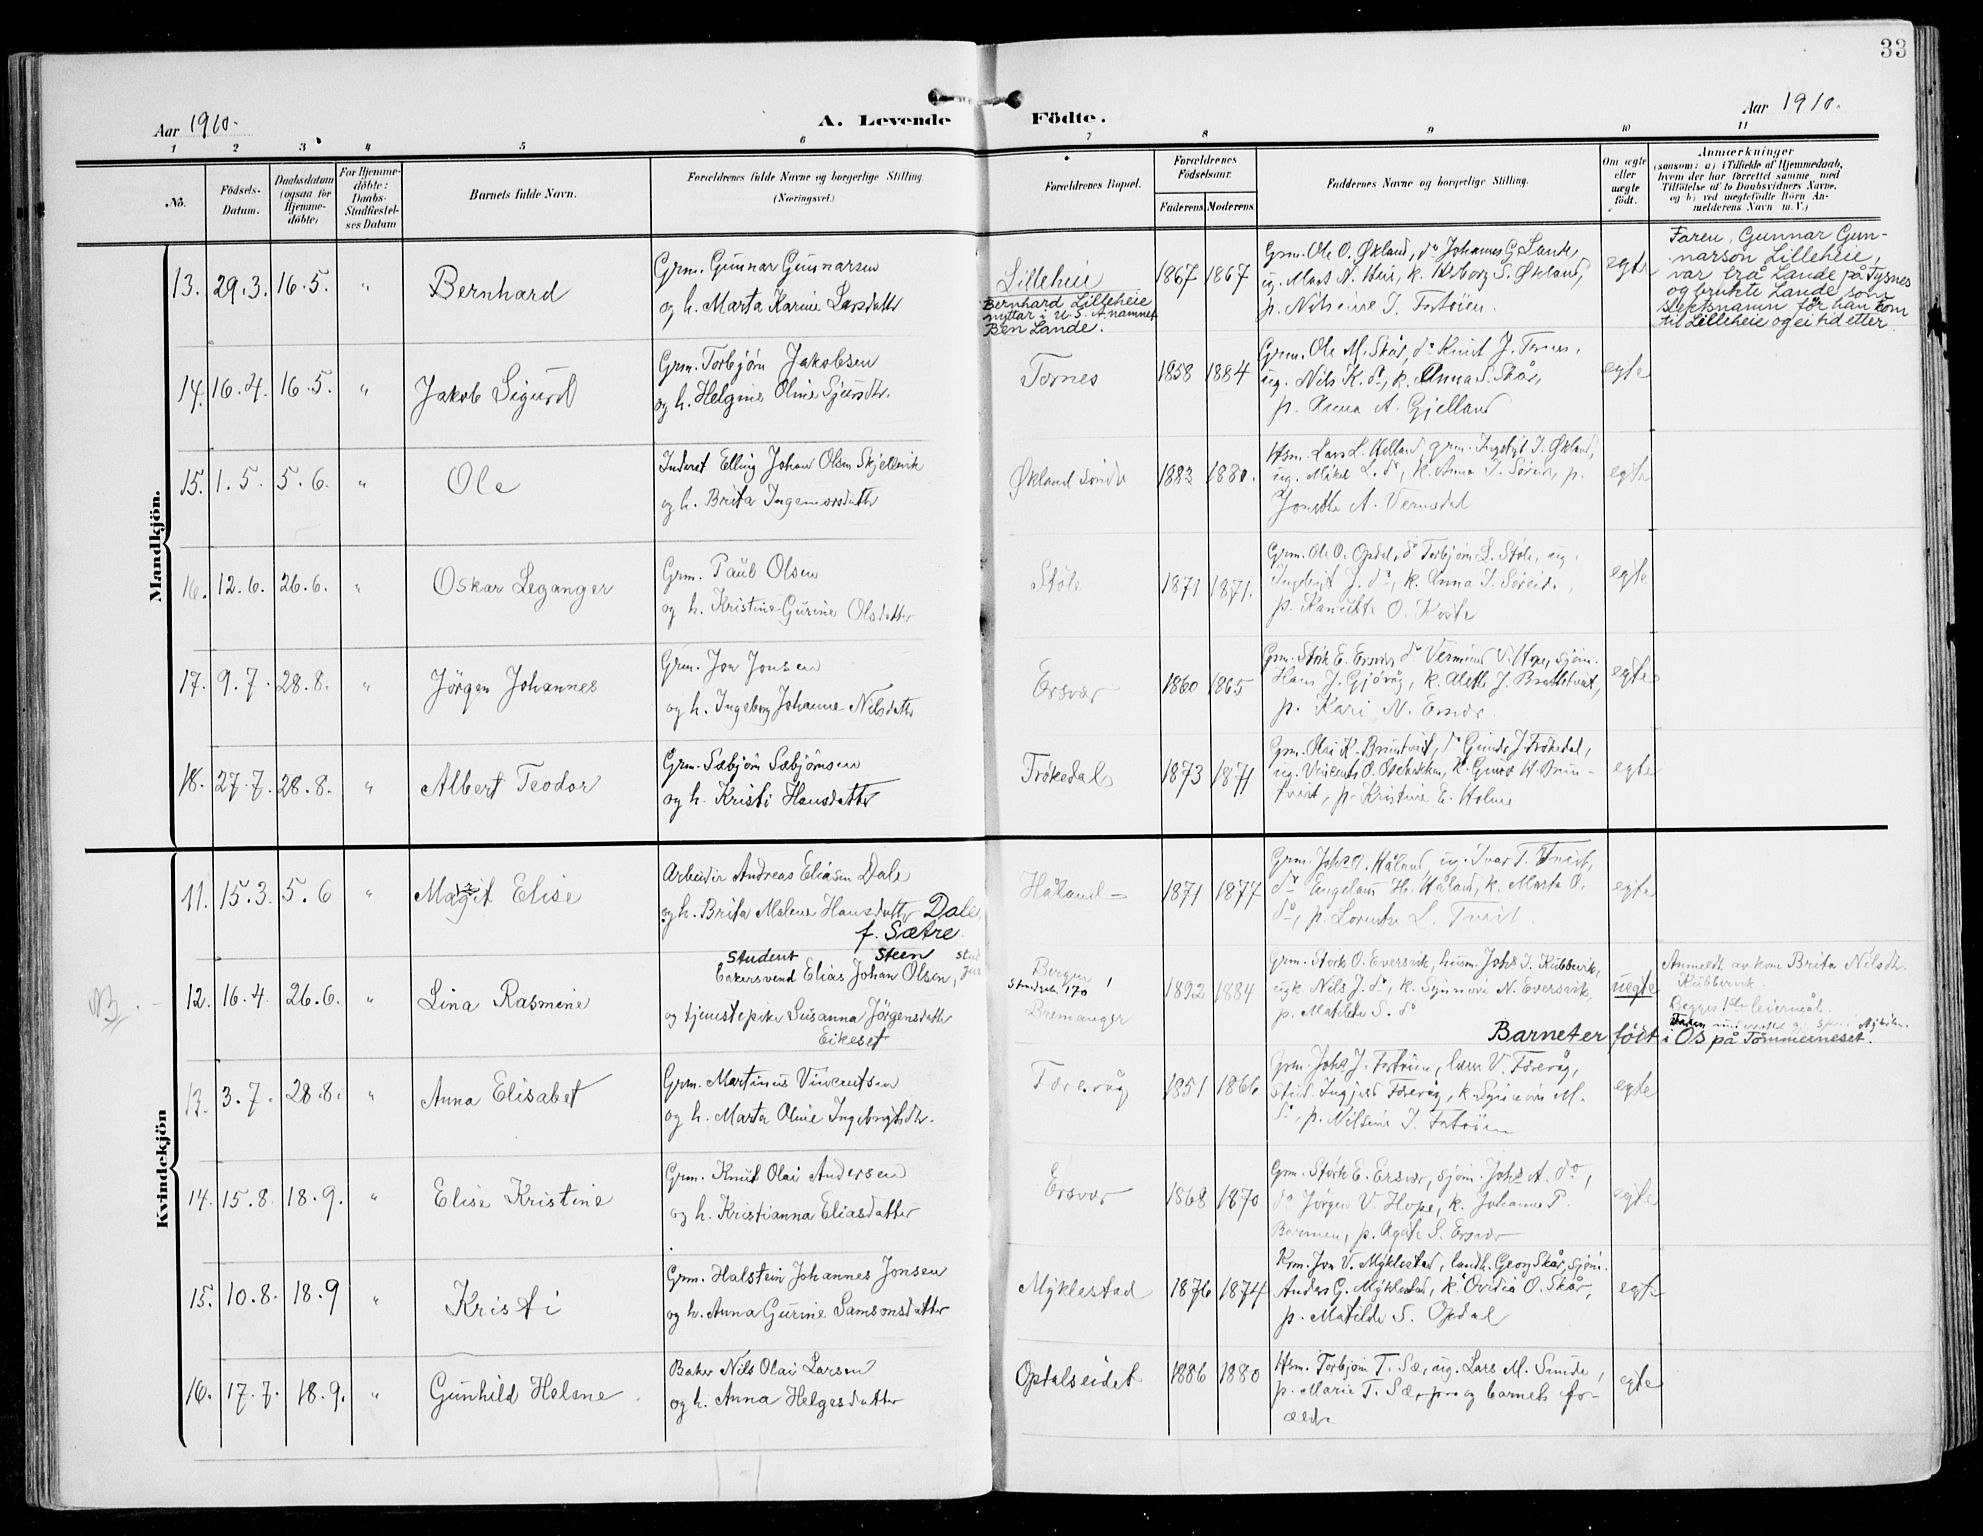 33
Aar 1910.
A. Levende Födte.
Aar 1910.
1 2 3 4 5 6 7 8 9 10 11
No.
Födsels-
Datum.
Daabsdatum
(ogsaa for
Hjemme-
döbte)
For Hjemme-
döbte:
Daabs-
Stadfæstel-
ses Datum
Barnets fulde Navn.
Forældrenes fulde Navne og borgerlige Stilling.
(Næringsvei.)
Forældrenes Bopæl.
Forældrenes
Födselsaar.
Faderens Moderens
Faddernes Navne og borgerlige Stilling.
Om ægte
eller
uægte
født.
Anmærkninger
(saasom: a) i Tilfælde af Hjemmedaab,
hvem der har forrettet samme med
Tilföielse af to Daabsvidners Navne,
og b) ved uægtefödte Börn An-
melderens Navn m. V.)
Mandkjön.
13. 29.3. 16.5. " Bernhard
Grm. Gunnar Gunnarsen
og h. Marta Karine Larsdatter
Lilleheie
Bernhard Lilleheie
nyttar i U.S.A namnet
Ben Lande.
1867 1867
Grm. Ole O. Økland, do Johannes G. Lande,
ug. Mars A. Heie, k. Herborg S. Økland,
p. Nilsine J. Fortöien.
egte
Faren, Gunnar Gun-
narson Lilleheie,
var frå Lande på Tysnes
og brukte Lande som
slektnamn før han kom
til Lilleheie og ei tid etter.
14. 16.4. 16.5. " Jakob Sigurd
Grm. Torbjørn Jakobsen
og h. Helgine Oline Sjursdtr.
Tornes
1858 1884
Grm. Ole M. Skår, do Knut J. Tornes,
ug. Nils K. do, k. Anna S. Skår,
p. Anna A. Gjelland
egte
15. 1.5. 5.6. " Ole
Inderst Elling Johan Olsen Skjellevik
og h. Brita Ingemorsdatter
Økland söndr
1883 1880.
Hsm. Lars L. Helland, grm. Ingebrigt J. Økland,
ug. Mikal L. do, k. Anna J. Söreide, p.
Jonetta A. Vernsdal
egte
16. 12.6. 26.6. " Oskar Leganger
Grm. Paul Olsen
og h. Kristine Gurine Olsdatter
Støle
1871 1871.
Grm. Ole O. Opdal, do Torbjørn L. Støle, ug.
Ingebrigt J. do, k. Anna J. Söreide,
p. O. Koste
egte
17. 9.7. 28.8. " Jörgen Johannes
Grm. Jon Jonsen
og h. Ingeborg Johanne Nilsdatter
Ersvær
1860 1865
Grm. Störk E. Ersvær, do V. Hope, sjöm.
Hans J. Gjövåg, k. Alette J. Brattetveit,
p. Kari N. Ersvær.
egte
18. 27.7. 28.8. " Albert Teodor
Grm. Sæbjörn Sæbjörnsen
og h. Kristi Hansdatter
Frökedal
1873 1871
Grm. Olai K. Bruntveit, do Gunder J. Frökedal,
ug. Vincents O. k. Guro H. Brun-
tveit, p. Kristine E. Holme
egte
Kvindekjön
11. 15.3. 5.6 " Magit Elise
Arbeider Andreas Eliasen Dale
og h. Brita Malene Hansdatter Dale,
f. Sætre.
Håland
1871 1877
Grm. Johs O. Håland, ug. Ivar T. Tveit,
do Engelaus H. Håland, k. Marta O.
do, p. Lorentse L. Tveit.
egte
12. 16.4. 26.6. " Lina Rasmine
Student Steen
Bakersvend Elias Johan Olsen,
og tjenestepike Susanna Jörgensdatter
Eikeset
Bergen
170
Bremanger
1892 1884
Grm. Störk O. Eversvik, husm. Johs J. Kubbervik,
ugk. Nils J. do, k. Synnove N. Eversvik,
p. Matilda S. do
uegte
Anmeldt av kone Brita Nilsdtr.
Kubbervik.
Begges 1ste leiermål.
Barnet er født i Os på Tømmerneset.
13. 3.7. 28.8. " Anna Elisabet
Grm. Martinus Vincentsen
og h. Marta Oline Ingebrigtsdtr.
Færevåg
1851 1866
Grm. Johs J. Fortöien, V. Færevåg,
Stud. Ingjerd Færevåg, k. Synnöve M.
do, p. Nilsine J. Fortöien
egte
14. 15.8. 18.9. " Elise Kristine
Grm. Knut Olai Andersen
og h. Kristianna Eliasdatter
Ersvær
1868 1870
Grm. Störk E. Ersvær, sjöm. Johs A. do,
do Jörgen V. Hope, k. Johanne P.
p. Agate S. Ersvær
egte
15. 10.8. 18.9 " Kristi
Grm. Halstein Johannes Jonsen
og h. Anna Gurine Samsonsdatter
Myklestad
1876 1874
Krm. Jon V. Myklestad, landh. Georg Skår, sjöm.
Anders G. Myklestad, k. Ovidia O. Skår,
p. Matilde S. Opdal
egte
16. 17.7. 18.9. " Gunhild Helene
Baker Nils Olai Larsen
og h. Anna Helgesdatter
Opdalseidet
1886 1880
Hsm. Torbjørn T. Sæ, ug. Lars M. Sunde,
p. Marie T. Sæ, og barnets for-
ældre
egte